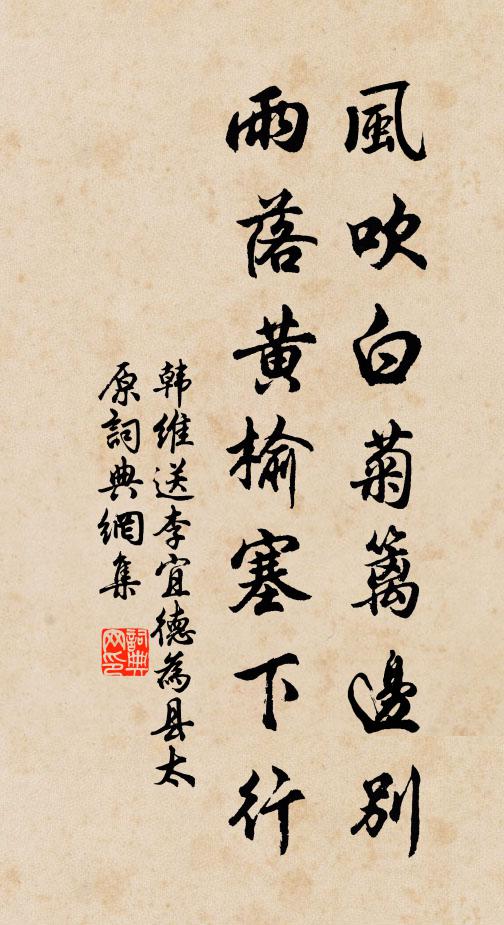 風吹白菊籬邊別
雨落黃榆塞下行
韩維送李宜德為县太
原詞典網集
詞典網印